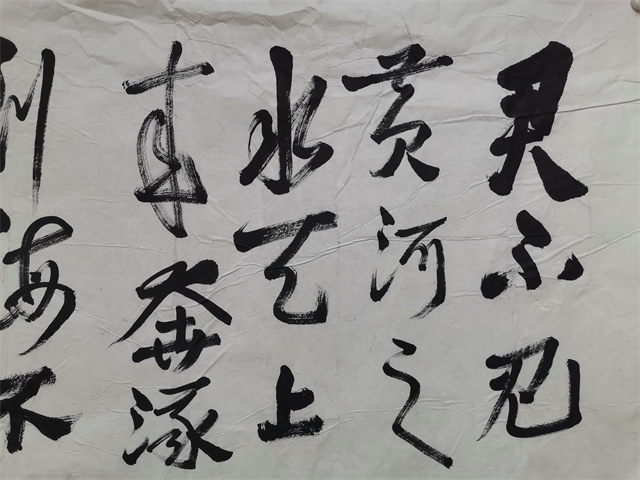 君不見
黄河之
水天上
来奔流
到海不